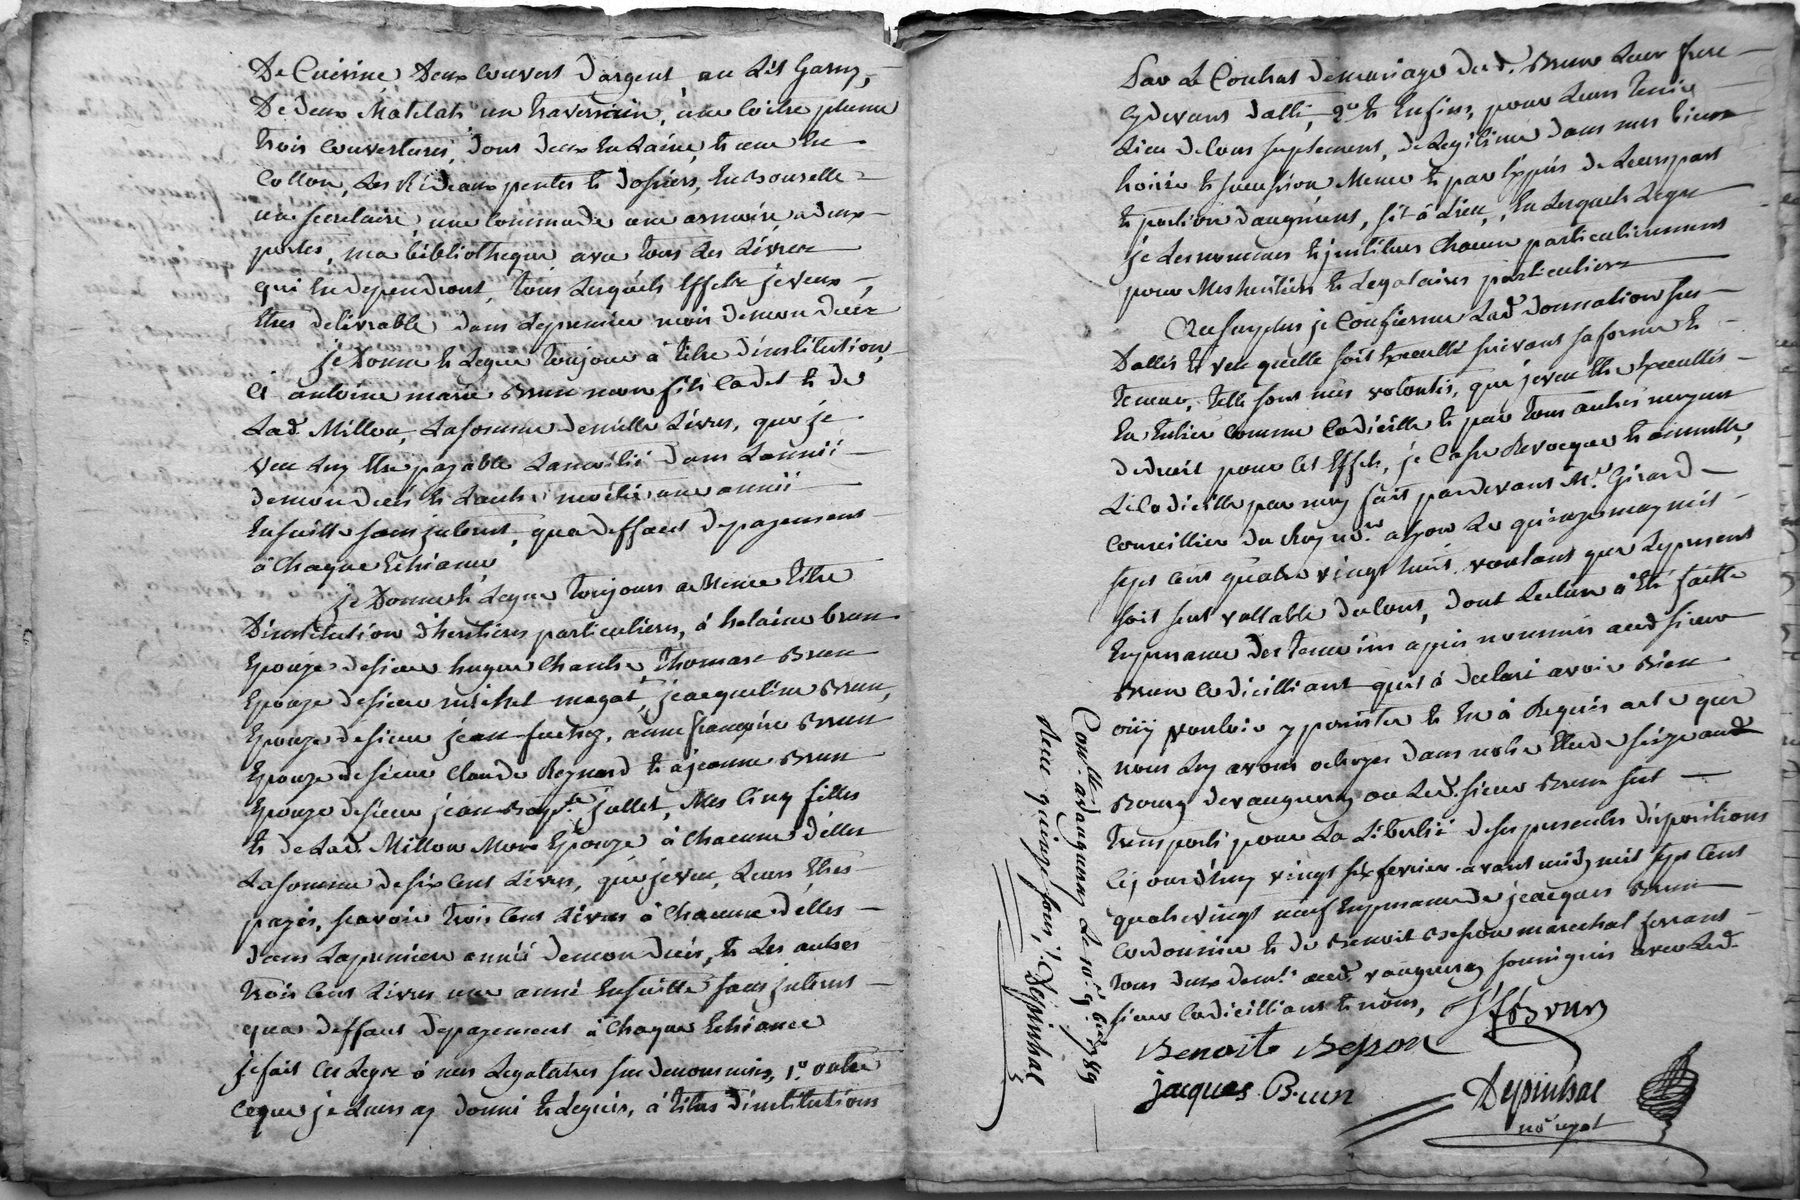 De Cuisine, Deux Couvert d'argent, un Lit Garny,
De deux Matelats un traversain, une Coitre plume
trois Couvertures, dont deux En Laine, et une En
Cotton, Les Rideaux pentes et dossiers, En Bourette
une secretaire, une Commode une armoire a deux
portes, ma bibliotheque avec tous Les Livres
qui En dependront, tous Lesquels Effets je veux
Etres delivrable dans Le premier mois de mon decéz
je Donne et Legue toujour à titre d'institution,
à antoine marie Brun mon fils Cadet et de
Lad. Millon, La somme de mille Livres, que je
veu Luy Etre payable La moitié dans L'année
de mon decés et L'autre moitié une année
Ensuitte sans jnterest, qu'a deffaut depayement
à Chaque Echéance
je Donne et Legue toujours a Meme titre
D'institution d'heritieres particulieres, à helaine brun
Epouze de sieur hugue Thomase Brun
Epouze de sieur michel magat, jacqueline Brun,
Epouze de sieur jean anne françoise Brun
Epouze de sieur Claude Reynard et à jeanne Brun
Epouze de sieur jean Bapte. jullet, Mes Cinq filles
et de Lad. Millon Mon Epouze à Chacune d'elles
La somme de six Cent Livres, que je veu, Leurs Etres
payés, scavoir trois Cent Livres à Chacune d'elles
dans La premiere année de mon decés, et Les autres
trois Cent Livres une anné Ensuitte sans jnterest
qu'as deffaut depayement à Chaque Echéance
je fait Ces Legs à mes Legataires sus denommés, 1°. outre
Ceque je Leurs ay donné et Legués, à titres d'institutions
Par Le Contrat de mariage dud. Brun Leur frere
Cy devant datté, 2° et Enfin, pour Leurs tenir
Lieu de tous suplement, de Legitime dans mes biens
hoirie et sucession Meme et par Exprés de Leurs part
et portion d'augment, s'il à Lieu, En Lesquels Legs
je Les nommes et jnstitues Chacun particulierement
pour Mes heritiers et Legataires particuliers
Au surplus je Confirme Lad. donnation sus
Dattés et veu quelle soit Executté suivant sa forme et
teneur, telle sont mes volontés, que je veu Etre Executtés
En Entier Comme Codicille et par tous autres moyens
de droit pour Cet Effet, je Casse Revocque et annulle,
Le Codicille par moy fait pardevant Me. Girard
Conseillier du Roy no.re a Lyon Le quinze may mil
sept Cent quatre vingt huit voulant que Le present
soit seul vallable de tous, dont Lecture à Eté faitte
En presance des temoins après nommés aud sieur
Brun Codicilliant qui à declaré avoir Bien
oüy vouloir y persister et En à Requis acte que
nous Luy avons octroyer dans notre Etude size aud
Bourg de vaugneray ou Led. sieur Brun s'est
transporté pour La Liberté de ses presentes dispositions
Cejourd'huy vingt six fevrier avant midy mil sept Cent
quatrevingt neuf En presance de jacques Brun
Cordonnier et de Benoit Besson marechal ferrant
tous deux demt. aud. vaugneray soussignés avec Led.
sieur Codicilliant et nous,
Brun
Benoit Besson
jacques Brun
Despinhac
no.re royal
Conllé. à vaugneray Le 1789
Recu quinze sous, Despinhac